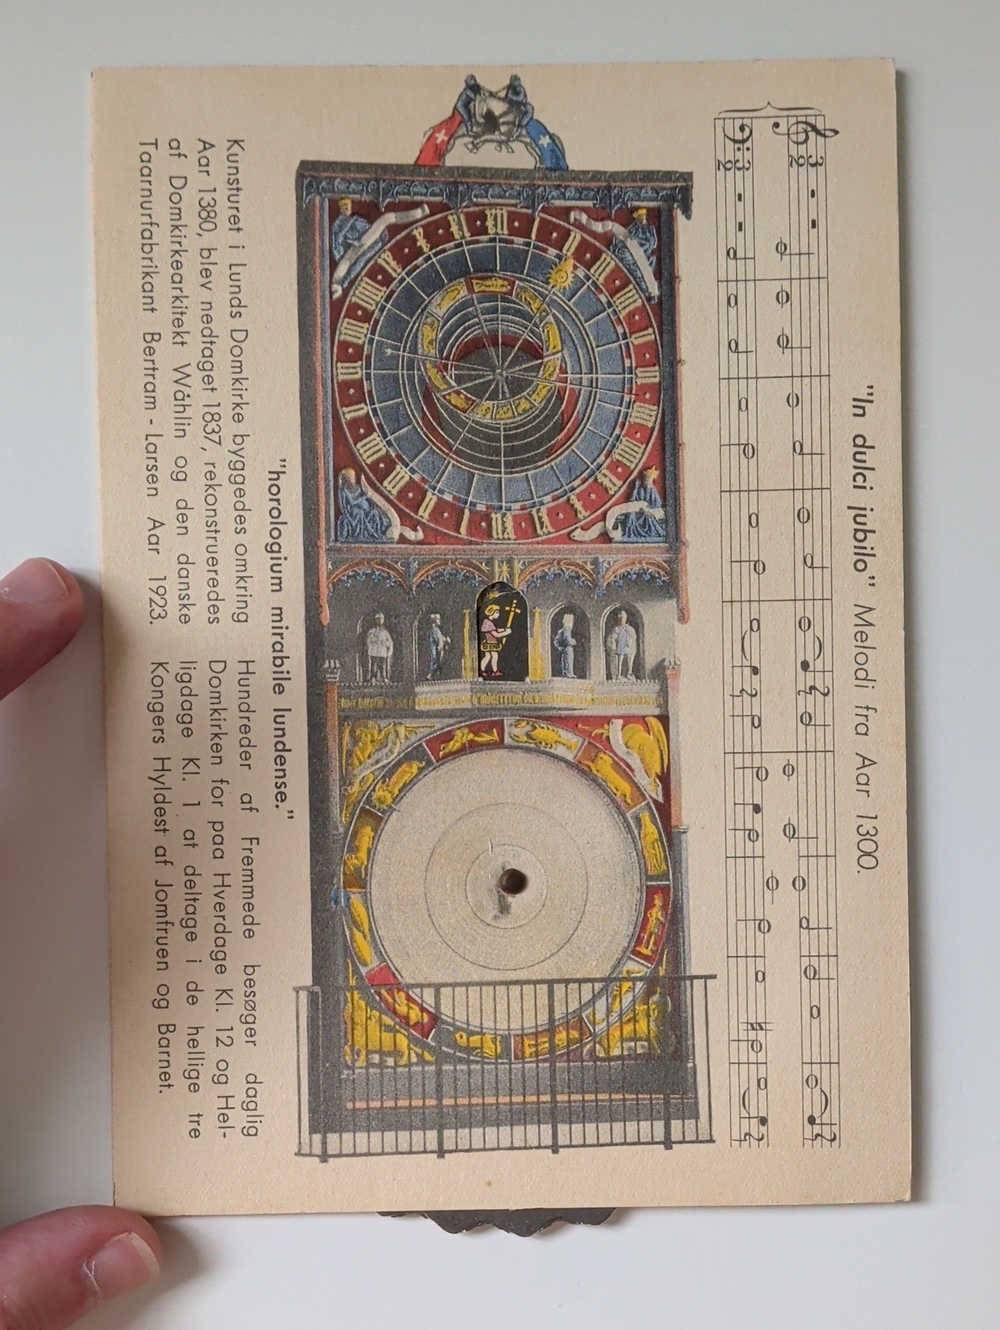 "In dulci jubilo" Melodi fra Aar 1300.
"horologium mirabile lundense."
Kunsturet i Lunds Domkirke byggedes omkring
Aar 1380, blev nedtaget 1837, rekonstrueredes
af Domkirkearkitekt Wåhlin og den danske
Taarnurfabrikant Bertram - Larsen Aar 1923.
Hundreder af Fremmede besøger daglig
Domkirken for paa Hverdage Kl. 12 og Hel-
ligdage Kl. 1 at deltage i de hellige tre
Kongers Hyldest af Jomfruen og Barnet.